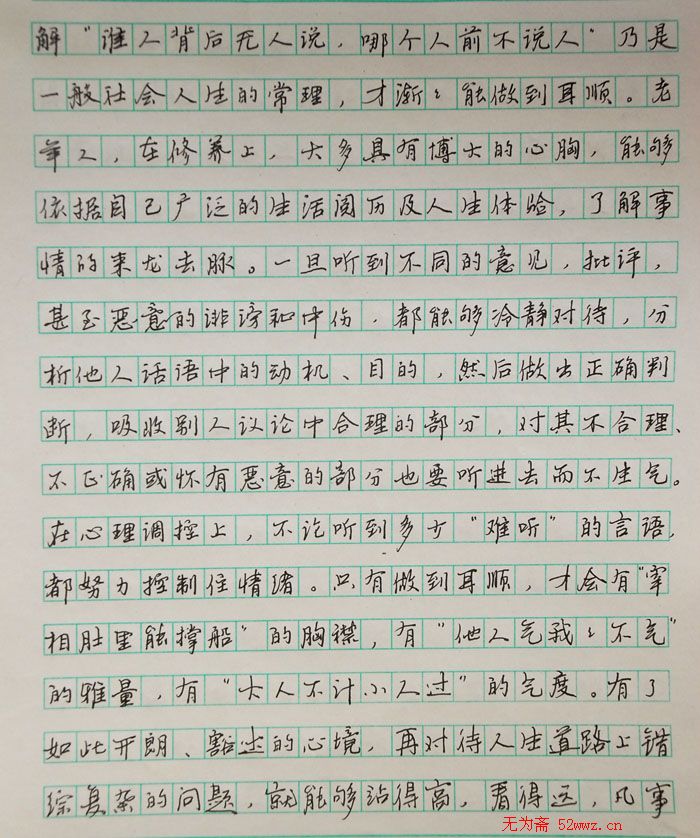 解“谁人背后无人说，哪个人前不说人”乃是
一般社会人生的常理，才渐々能做到耳顺。老
年人，在修养上，大多具有博大的心胸，能够
依据自己广泛的生活阅历及人生体验，了解事
情的来龙去脉。一旦听到不同的意见，批评，
甚至恶意的诽谤和中伤，都能够冷静对待，分
析他人话语中的动机、目的，然后做出正确判
断，吸收别人议论中合理的部分，对其不合理、
不正确或怀有恶意的部分也要听进去而不生气。
在心理调控上，不论听到多少“难听”的言语，
都努力控制住情绪。只有做到耳顺，才会有“宰
相肚里能撑船”的胸襟，有“他人气我々不气”
的雅量，有“大人不计小人过”的气度。有了
如此开朗、豁达的心境，再对待人生道路上错
综复杂的问题，就能够站得高，看得远，凡事
无为斋 52wwz.cn